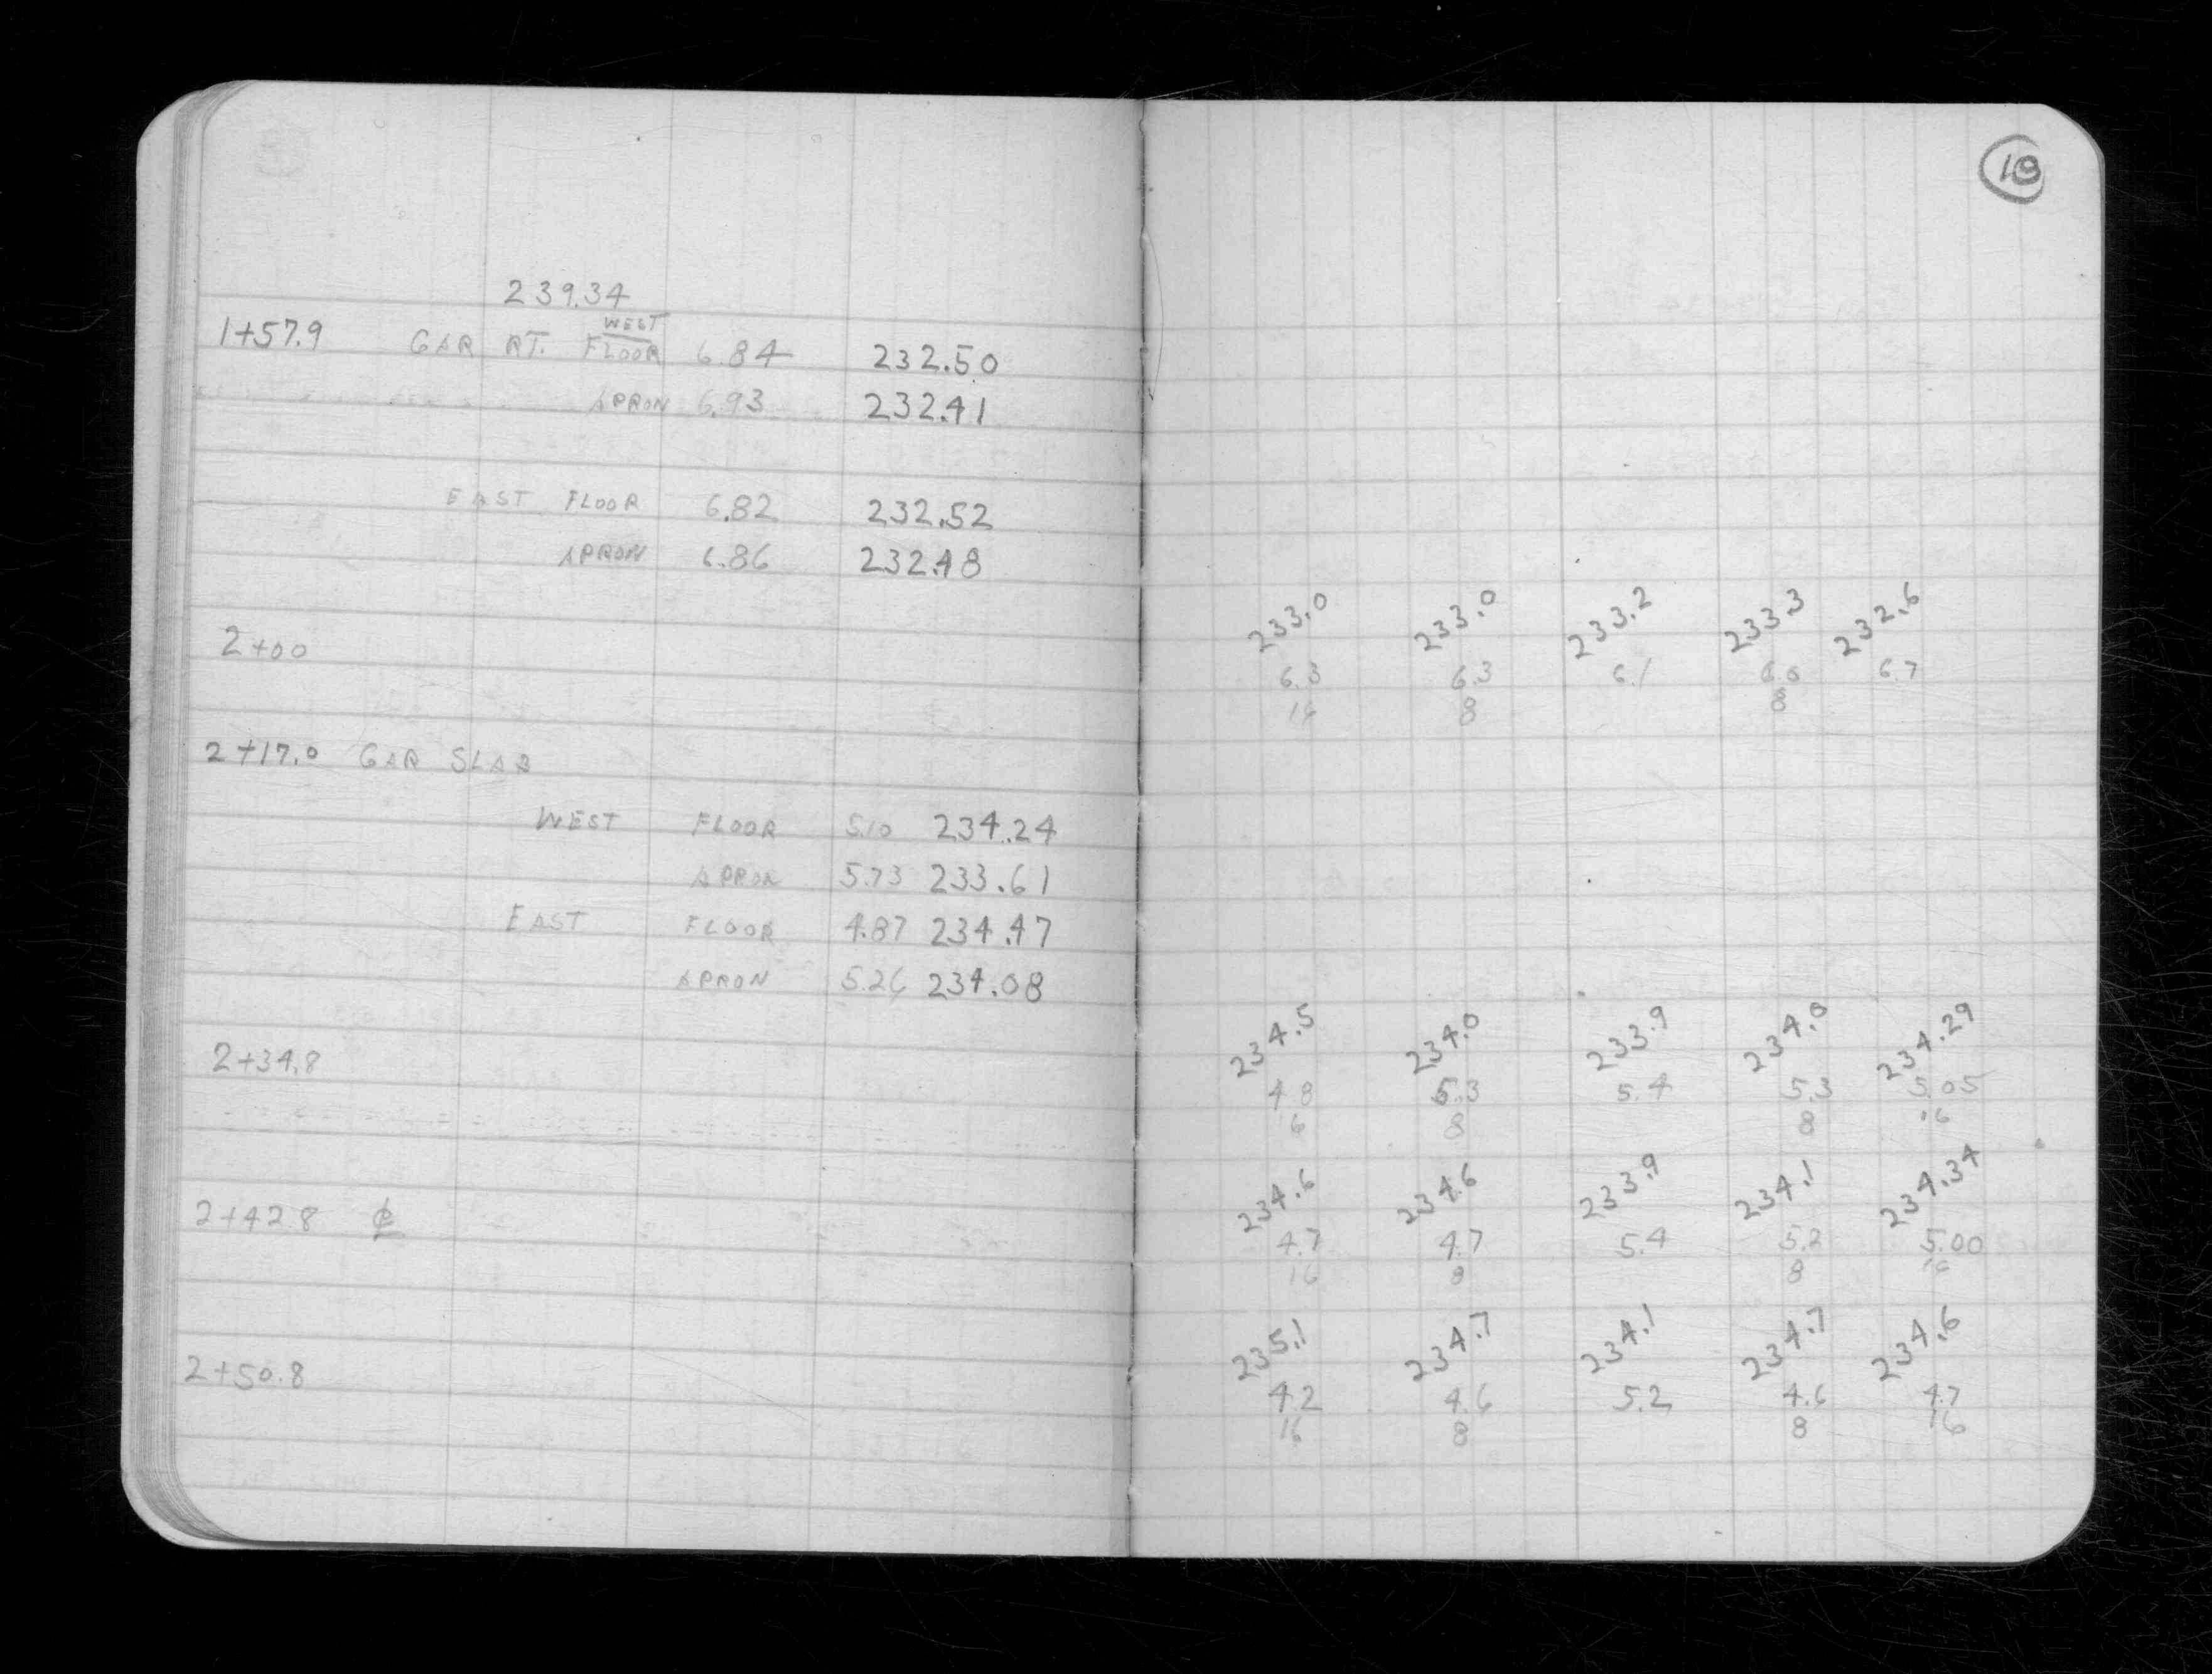 18
239.34
WEST
1+57.9 GAR RT. FLOOR 6.84 232.50
APRON 6.93 232.41
EAST FLOOR 6.82 232.52
APRON 6.86 232.48
233.0 233.0 233.2 233.3 232.6
2+00 6.3 6.3 6.1 6.0 6.7
16 8 8
2+17.0 GAR SLAB
WEST FLOOR 5.10 234.24
APRON 5.73 233.61
EAST FLOOR 4.87 234.47
APRON 5.26 234.08
234.5 234.0 233.9 234.0 234.29
2+34.8 4.8 5.3 5.4 5.3 5.05
6 8 8 16
234.6 234.6 233.9 234.1 234.34
2+42.8 ⅊ 4.7 4.7 5.4 5.2 5.00
16 8 8 16
235.1 234.7 234.1 234.7 234.6
2+50.8 4.2 4.6 5.2 4.6 4.7
16 8 8 16